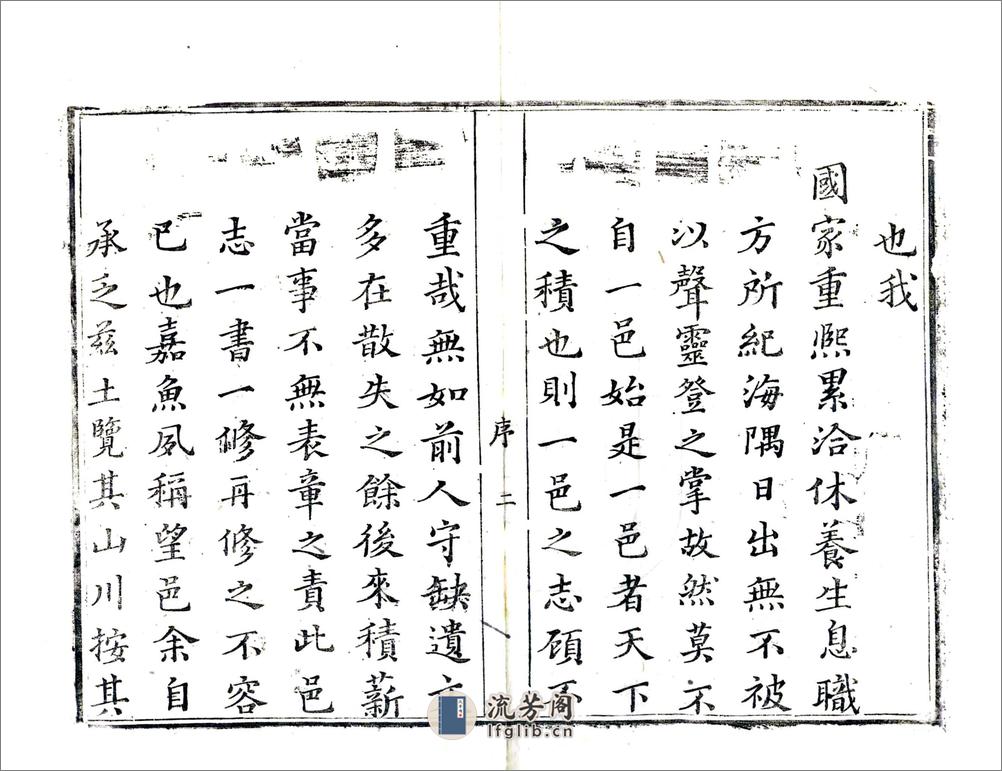 也我
國家重熈累洽休養生息職
方所紀海隅日出無不被
以聲靈登之掌故然莫不
自一邑始是一邑者天下
之積也則一邑之志顧不
序
二
重哉無如前人守缺遺文
多在散失之餘後來積薪
當事不無表章之責此邑
志一書一修再修之不容
已也嘉魚夙稱望邑余自
承乏茲土覽其山川按其
流芳阁
lfglib.cn